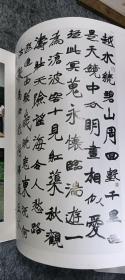 越水繞碧山周回數千里乃
是天鏡中分明畫相似愛
此從冥搜永懷臨湍遊一
為滄波客十見紅蕖秋觀
濤壑天險望海令人愁路